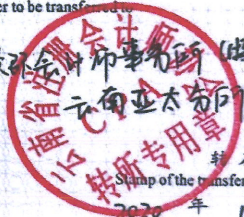 er to be transferred to
会计师事务所
云南亚太分所
云南省注册会计师协会
CPA
转所专用章
转
Stamp of the transfer
2020 年